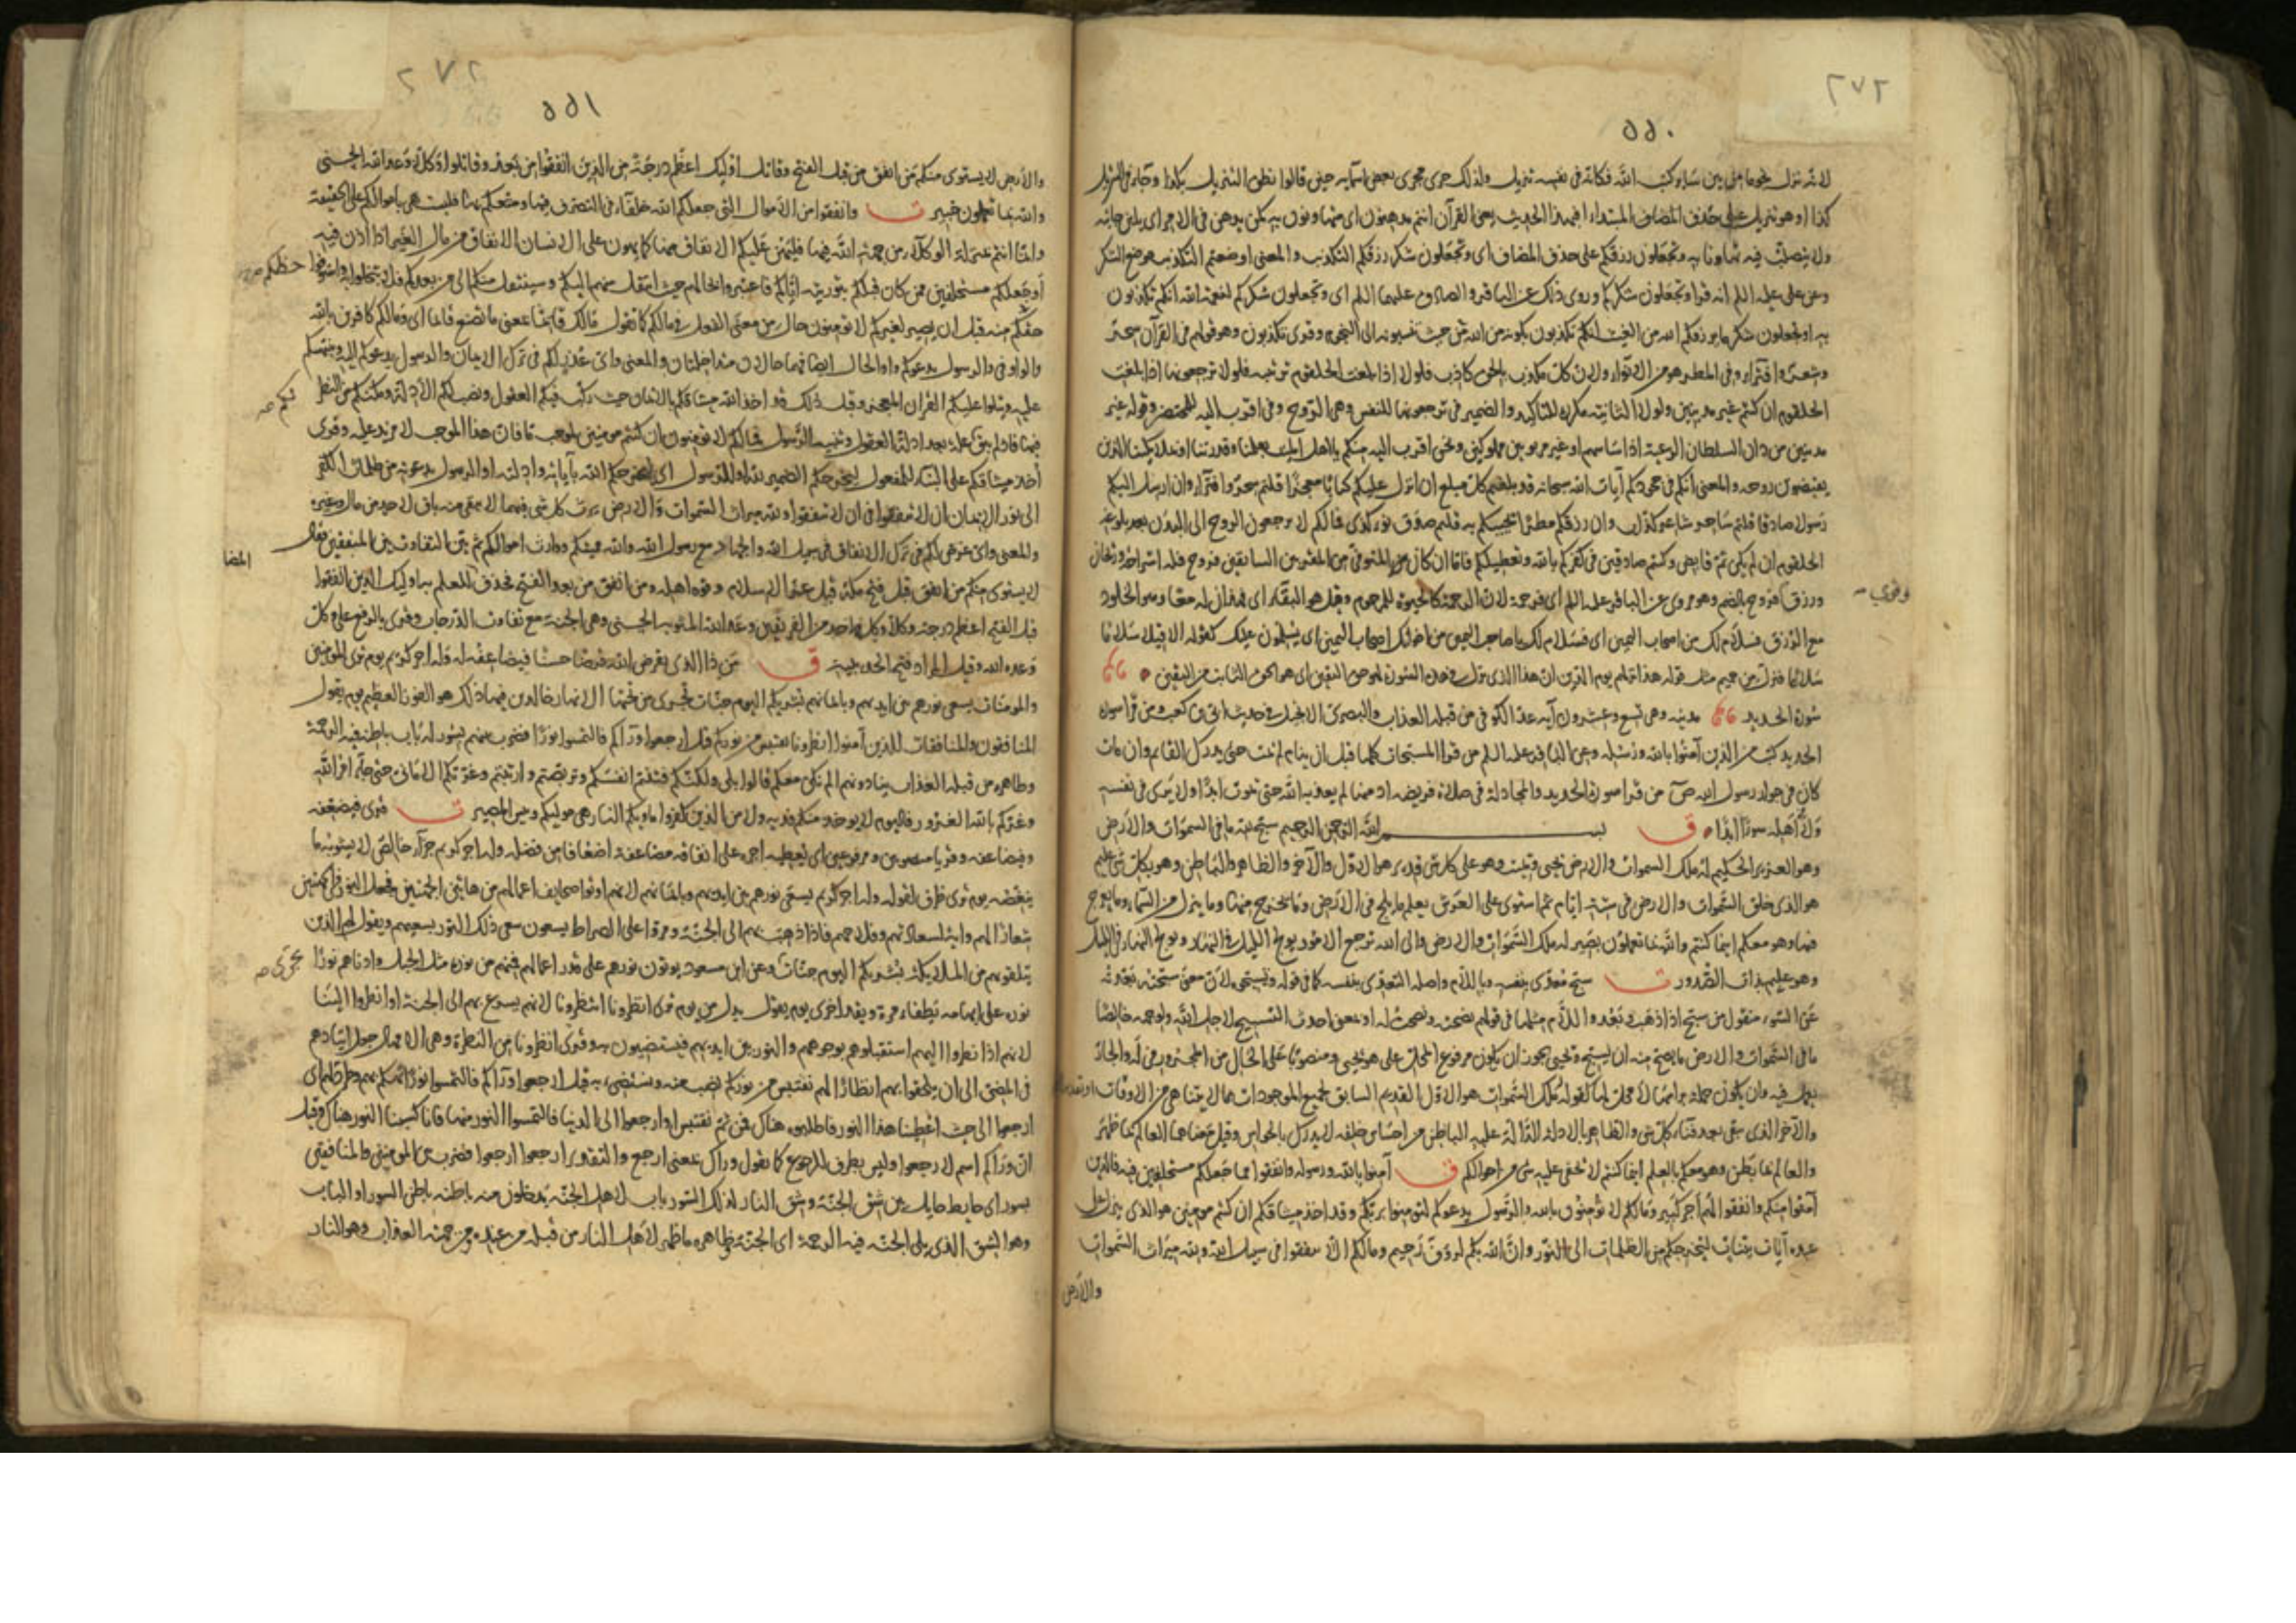 ٢٧٢
٥٥٠
لانه نزل نجوما من بين ساير كتب الله فكانه في نفسه تنزيل ولذلك جرى مجرى بعض اسمائه حين قالوا نطق التنزيل بكذا وجاء في التنزيل
كذا او هو تنزيل على حذف المضاف المبتداء افبهذا الحديث يعني القرآن انتم مدهنون اي متهاونون به كمن يدهن في الامر اي يلين جانبه
ولا يتصلب فيه تهاونا به وتجعلون رزقكم على حذف المضاف اي وتجعلون شكر رزقكم التكذيب والمعنى اوضعتم التكذيب موضع الشكر
وعن علي عليه اللم انه قرا وتجعلون شكركم وروى ذلك عن الباقر والصادق عليهما اللم اي وتجعلون شكركم لنعمة الله انكم تكذبون
به او تجعلون شكر ما يرزقكم الله من الغيث انكم تكذبون بكونه من الله من حيث تنسبونه الى النجوم وقرى تكذبون وهو قولهم في القرآن سحر
وشعر وافتراء وفي المطر هو من الانواء ولان كل مكذب بالحق كاذب فلولا اذا بلغت الحلقوم ترتيبه فلولا ترجعونها اذا بلغت
الحلقوم ان كنتم غير مدينين ولولا الثانية مكررة للتاكيد والضمير في ترجعونها للنفس وهي الروح وفي اقرب اليه للمحتضر وقوله غير
مدينين من دان السلطان الرعية اذا ساسهم او غير مربوبين مملوكين ونحن اقرب اليه منكم يا اهل الميت بعلمنا وقدرتنا او بملائكتنا الذين
يقبضون روحه والمعنى انكم في جحودكم آيات الله سبحانه قد بلغتم كل مبلغ ان انزل عليكم كتابا معجزا قلتم سحر وافتراء وان ارسل اليكم
رسولا صادقا قلتم ساحر شاعر كذاب وان رزقكم مطرا يحييكم به قلتم صدق نوء كذا فما لكم لا ترجعون الروح الى البدن بعد بلوغه
الحلقوم ان لم يكن ثم قابض وكنتم صادقين في كفركم بالله وتعطيلكم فاما ان كان من المتوفى من المقربين السابقين فروح فله استراحة وريحان
ورزق فروح بالضم وهو مروي عن الباقر عليه اللم اي فرحمة لان الرحمة كالحيوة للمرحوم وقيل هو البقاء اي فهذان له معا وهو الخلود
وقرى
مع الرزق فسلام لك من اصحاب اليمين اي فسلام لك يا صاحب اليمين من اخوانك اصحاب اليمين اي يسلمون عليك كقوله الا قيلا سلاما
سلاما فنزل من حميم مثل قوله هذا نزلهم يوم الدين ان هذا الذي نزل في هذه السورة لهو حق اليقين اي هو الحق الثابت من اليقين
سورة الحديد مدنية وهي تسع وعشرون آية عد الكوفي من قبله العذاب والبصري الانجيل في حديث ابي بن كعب ومن قرا سورة
الحديد كتب من الذين آمنوا بالله ورسله وعن الباقر عليه اللم من قرا المسبحات كلها قبل ان ينام لم يمت حتى يدرك القايم وان مات
كان في جوار رسول الله ص من قرا سورة الحديد والمجادلة في صلاة فريضة ادمنها لم يعذبه الله حتى يموت ابدا ولا يرى في نفسه
ولا اهله سوءا ابدا ق بسم الله الرحمن الرحيم سبح لله ما في السموات والارض
وهو العزيز الحكيم له ملك السموات والارض يحيي ويميت وهو على كل شئ قدير هو الاول والآخر والظاهر والباطن وهو بكل شئ عليم
هو الذي خلق السموات والارض في ستة ايام ثم استوى على العرش يعلم ما يلج في الارض وما يخرج منها وما ينزل من السماء وما يعرج
فيها وهو معكم اينما كنتم والله بما تعملون بصير له ملك السموات والارض والى الله ترجع الامور يولج الليل في النهار ويولج النهار في الليل
وهو عليم بذات الصدور ت سبح متعدي بنفسه وباللام واصله التعدي بنفسه كما في قوله وتسبحوه لان معنى سبحته بعدته
عن السوء منقول من سبح اذا ذهب وبعد واللام مثلها في قولهم نصحته ونصحت له او بمعنى احدث التسبيح لاجل الله ولوجهه خالصا
ما في السموات والارض ما يصح منه ان يسبح ويحيي يجوز ان يكون مرفوع المحل على هو يحيي ومنصوبا على الحال من المجرور في له والجار
يعمل فيه وان يكون جملة براسها لا محل لها كقوله له ملك السموات هو الاول القديم السابق لجميع الموجودات بما لا يتناهى من الاوقات
والآخر الذي يبقى بعد فناء كل شئ والظاهر بالادلة الدالة عليه الباطن من احساس خلقه لا يدرك بالحواس وقيل معناهما العالم بما ظهر
والعالم بما بطن وهو معكم بالعلم اينما كنتم لا يخفى عليه شئ من احوالكم ق آمنوا بالله ورسوله وانفقوا مما جعلكم مستخلفين فيه فالذين
آمنوا منكم وانفقوا لهم اجر كبير وما لكم لا تؤمنون بالله والرسول يدعوكم لتؤمنوا بربكم وقد اخذ ميثاقكم ان كنتم مؤمنين هو الذي ينزل على
عبده آيات بينات ليخرجكم من الظلمات الى النور وان الله بكم لرؤف رحيم وما لكم الا تنفقوا في سبيل الله ولله ميراث السموات
والارض
٢٧٢
٥٥١
والارض لا يستوى منكم من انفق من قبل الفتح وقاتل اولئك اعظم درجة من الذين انفقوا من بعد وقاتلوا وكلا وعد الله الحسنى
والله بما تعملون خبير ت وانفقوا من الاموال التي جعلكم الله خلفاء في التصرف فيها ومتعكم بها فليست هي باموالكم على الحقيقة
وانما انتم بمنزلة الوكلاء من جهة الله فيها فليهن عليكم الانفاق منها كما يهون على الانسان الانفاق من مال الغير اذا اذن فيه
او جعلكم مستخلفين ممن كان قبلكم بتوريثه اياكم فاعتبروا بحالهم حيث انتقل منهم اليكم وسينتقل منكم الى من بعدكم فلا تبخلوا به واستوفوا
حظكم
حقكم منه قبل ان يصير لغيركم لا تؤمنون حال من معنى الفعل في ما لكم كما تقول ما لك قايما بمعنى ما تصنع قايما اي وما لكم كافرين بالله
والواو في والرسول يدعوكم واو الحال ايضا فهما حالان متداخلتان والمعنى واي عذر لكم في ترك الايمان والرسول يدعوكم اليه وينبهكم
عليه ويتلوا عليكم القران المعجز وقبل ذلك قد اخذ الله ميثاقكم بالايمان حيث ركب فيكم العقول ونصب لكم الادلة ومكنكم من النظر
فيها فاذ لم يبق علة بعد ادلة العقول وتنبيه الرسول فما لكم لا تؤمنون ان كنتم مؤمنين لموجب ما فان هذا الموجب لا مزيد عليه وقرى
اخذ ميثاقكم على البناء للمفعول ليخرجكم الضمير لله او للرسول اي ليخرجكم الله بآياته وادلته او الرسول بدعوته من ظلمات الكفر
الى نور الايمان ان لا تنفقوا في ان لا تنفقوا ولله ميراث السموات والارض يرث كل شئ فيهما لا يبقى منه باق لاحد من مال وغيره
والمعنى واي غرض لكم في ترك الانفاق في سبيل الله والجهاد مع رسول الله والله مميتكم ووارث اموالكم ثم بين التفاوت بين المنفقين فقال
لا يستوى منكم من انفق قبل فتح مكة قبل عز الاسلام وقوة اهله ومن انفق من بعد الفتح فحذف للعلم به اولئك الذين انفقوا
قبل الفتح اعظم درجة وكلا وكل واحد من الفريقين وعد الله المثوبة الحسنى وهي الجنة مع تفاوت الدرجات وقرى بالرفع على وكل
وعده الله وقيل المراد فتح الحديبية ق من ذا الذي يقرض الله قرضا حسنا فيضاعفه له وله اجر كريم يوم ترى المؤمنين
والمؤمنات يسعى نورهم بين ايديهم وبايمانهم بشريكم اليوم جنات تجري من تحتها الانهار خالدين فيها ذلك هو الفوز العظيم يوم يقول
المنافقون والمنافقات للذين آمنوا انظرونا نقتبس من نوركم قيل ارجعوا وراءكم فالتمسوا نورا فضرب بينهم بسور له باب باطنه فيه الرحمة
وظاهره من قبله العذاب ينادونهم الم نكن معكم قالوا بلى ولكنكم فتنتم انفسكم وتربصتم وارتبتم وغرتكم الاماني حتى جاء امر الله
وغركم بالله الغرور فاليوم لا يؤخذ منكم فدية ولا من الذين كفروا ماويكم النار هي موليكم وبئس المصير ت قرى فيضعفه
وفيضاعفه وقريا منصوبين ومرفوعين اي يعطيه اجره على انفاقه مضاعفة اضعافا من فضله وله اجر كريم جزاء خالص لا يشوبه ما
ينغصه يوم ترى ظرف لقوله وله اجر كريم يسعى نورهم بين ايديهم وبايمانهم لانهم اوتوا صحايف اعمالهم من هاتين الجهتين فجعل النور في الجهتين
شعارا لهم وآية لسعادتهم وفلاحهم فاذا ذهب بهم الى الجنة ومروا على الصراط يسعون سعى ذلك النور بسعيهم ويقول لهم الذين
يتلقونهم من الملائكة بشريكم اليوم جنات وعن ابن مسعود يوتون نورهم على قدر اعمالهم فمنهم من نوره مثل الجبل وادناهم نورا
نوره على ابهامه يطفاء مرة ويقد اخرى يوم يقول بدل من يوم ترى انظرونا انتظرونا لانهم يسرع بهم الى الجنة او انظروا الينا
لانهم اذا نظروا اليهم استقبلوهم بوجوههم والنور بين ايديهم فيستضيئون به وقرى انظرونا من النظرة وهي الامهال جعل اتيادهم
في المضي الى ان يلحقوا بهم انظارا لهم نقتبس من نوركم نصب منه ونستضئ به قيل ارجعوا وراءكم فالتمسوا نورا تهكم بهم وطرد لهم اي
ارجعوا الى حيث اعطينا هذا النور فاطلبوه هناك فمن ثم نقتبس او ارجعوا الى الدنيا فالتمسوا النور منها فانا كسبنا النور هناك وقيل
ان وراءكم اسم لارجعوا وليس بظرف للرجوع كما تقول وراك بمعنى ارجع والتقدير ارجعوا ارجعوا فضرب بين المؤمنين والمنافقين
بسور اي حايط حايل بين شق الجنة وشق النار لذلك السور باب لاهل الجنة يدخلون منه باطنه باطن السور او الباب
وهو الشق الذي يلي الجنة فيه الرحمة اي الجنة وظاهره ما ظهر لاهل النار من قبله من عنده ومن جهته العذاب وهو النار